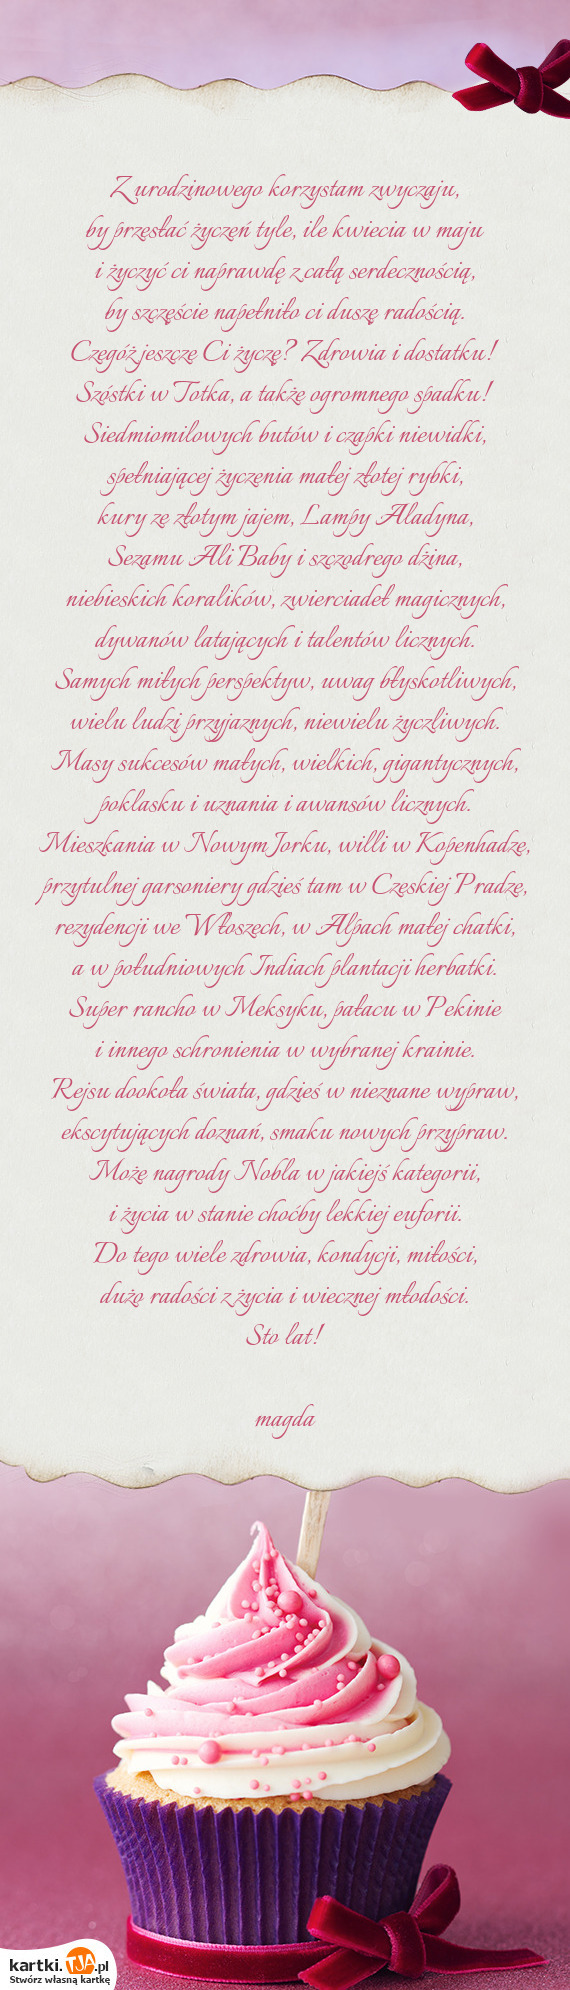 Z urodzinowego korzystam zwyczaju,
by przesłać życzeń tyle, ile kwiecia w maju
i życzyć ci naprawdę z całą serdecznością,
by szczęście napełniło ci duszę radością.
Czegóż jeszcze Ci życzę? Zdrowia i dostatku!
Szóstki w Totka, a także ogromnego spadku!
Siedmiomilowych butów i czapki niewidki,
spełniającej życzenia małej złotej rybki,
kury ze złotym jajem, Lampy Aladyna,
Sezamu Ali Baby i szczodrego dżina,
niebieskich koralików, zwierciadeł magicznych,
dywanów latających i talentów licznych.
Samych miłych perspektyw, uwag błyskotliwych,
wielu ludzi przyjaznych, niewielu życzliwych.
Masy sukcesów małych, wielkich, gigantycznych,
poklasku i uznania i awansów licznych.
Mieszkania w Nowym Jorku, willi w Kopenhadze,
przytulnej garsoniery gdzieś tam w Czeskiej Pradze,
rezydencji we Włoszech, w Alpach małej chatki,
a w południowych Indiach plantacji herbatki.
Super rancho w Meksyku, pałacu w Pekinie
i innego schronienia w wybranej krainie.
Rejsu dookoła świata, gdzieś w nieznane wypraw,
ekscytujących doznań, smaku nowych przypraw.
Może nagrody Nobla w jakiejś kategorii,
i życia w stanie choćby lekkiej euforii.
Do tego wiele zdrowia, kondycji, miłości,
dużo radości z życia i wiecznej młodości.
Sto lat!
magda
kartki.TJA.pl
Stwórz własną kartkę